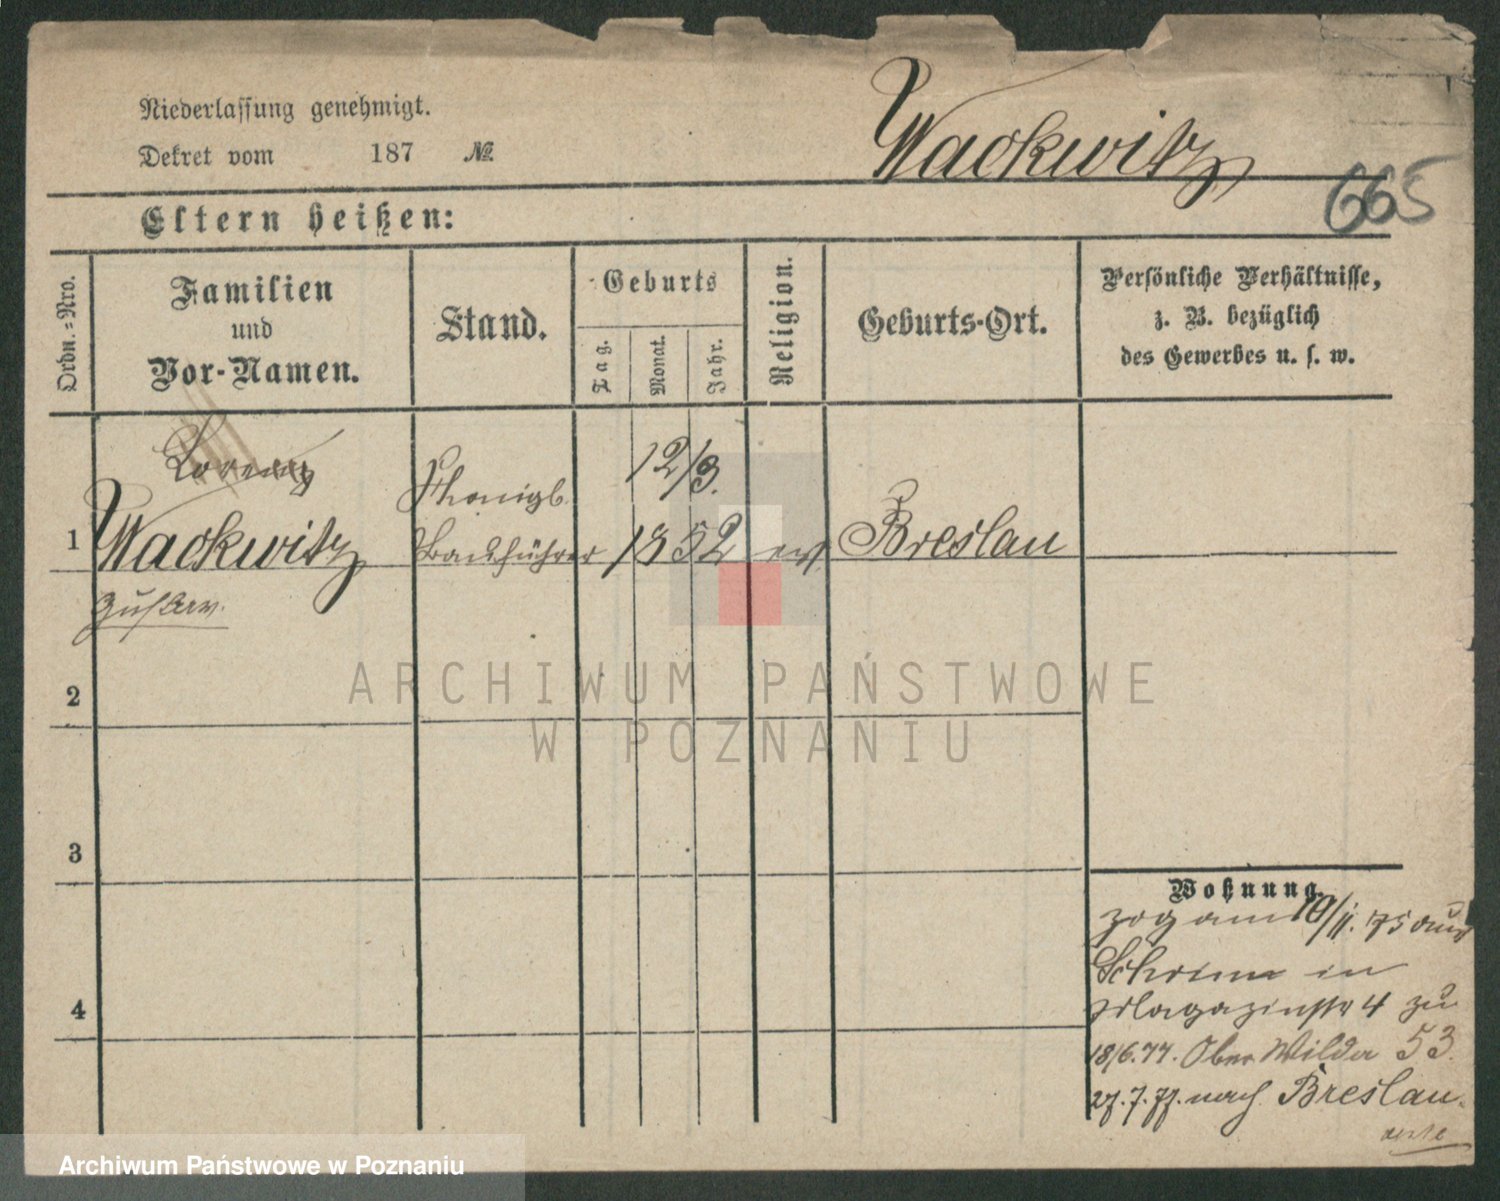 Niederlassung genehmigt.
Dekret vom 187 №
Wackwitz
665
Eltern heißen:
Ordn.=Nro.
Familien
und
Vor-Namen.
Stand.
Geburts
Tag.
Monat.
Jahr.
Religion.
Geburts-Ort.
Persönliche Verhältnisse,
z. B. bezüglich
des Gewerbes u. s. w.
Lorenz
1 Wackwitz
Gustav.
Königl.
Bauführer
12/3.
1852
ev.
Breslau
2
ARCHIWUM PAŃSTWOWE
W POZNANIU
3
4
Wohnung.
zog am 10/11. 75 aus
Schrimm in
Magazinstr 4 zu
18/6.77. Ober Wilda 53.
27.7.77. nach Breslau.
Archiwum Państwowe w Poznaniu